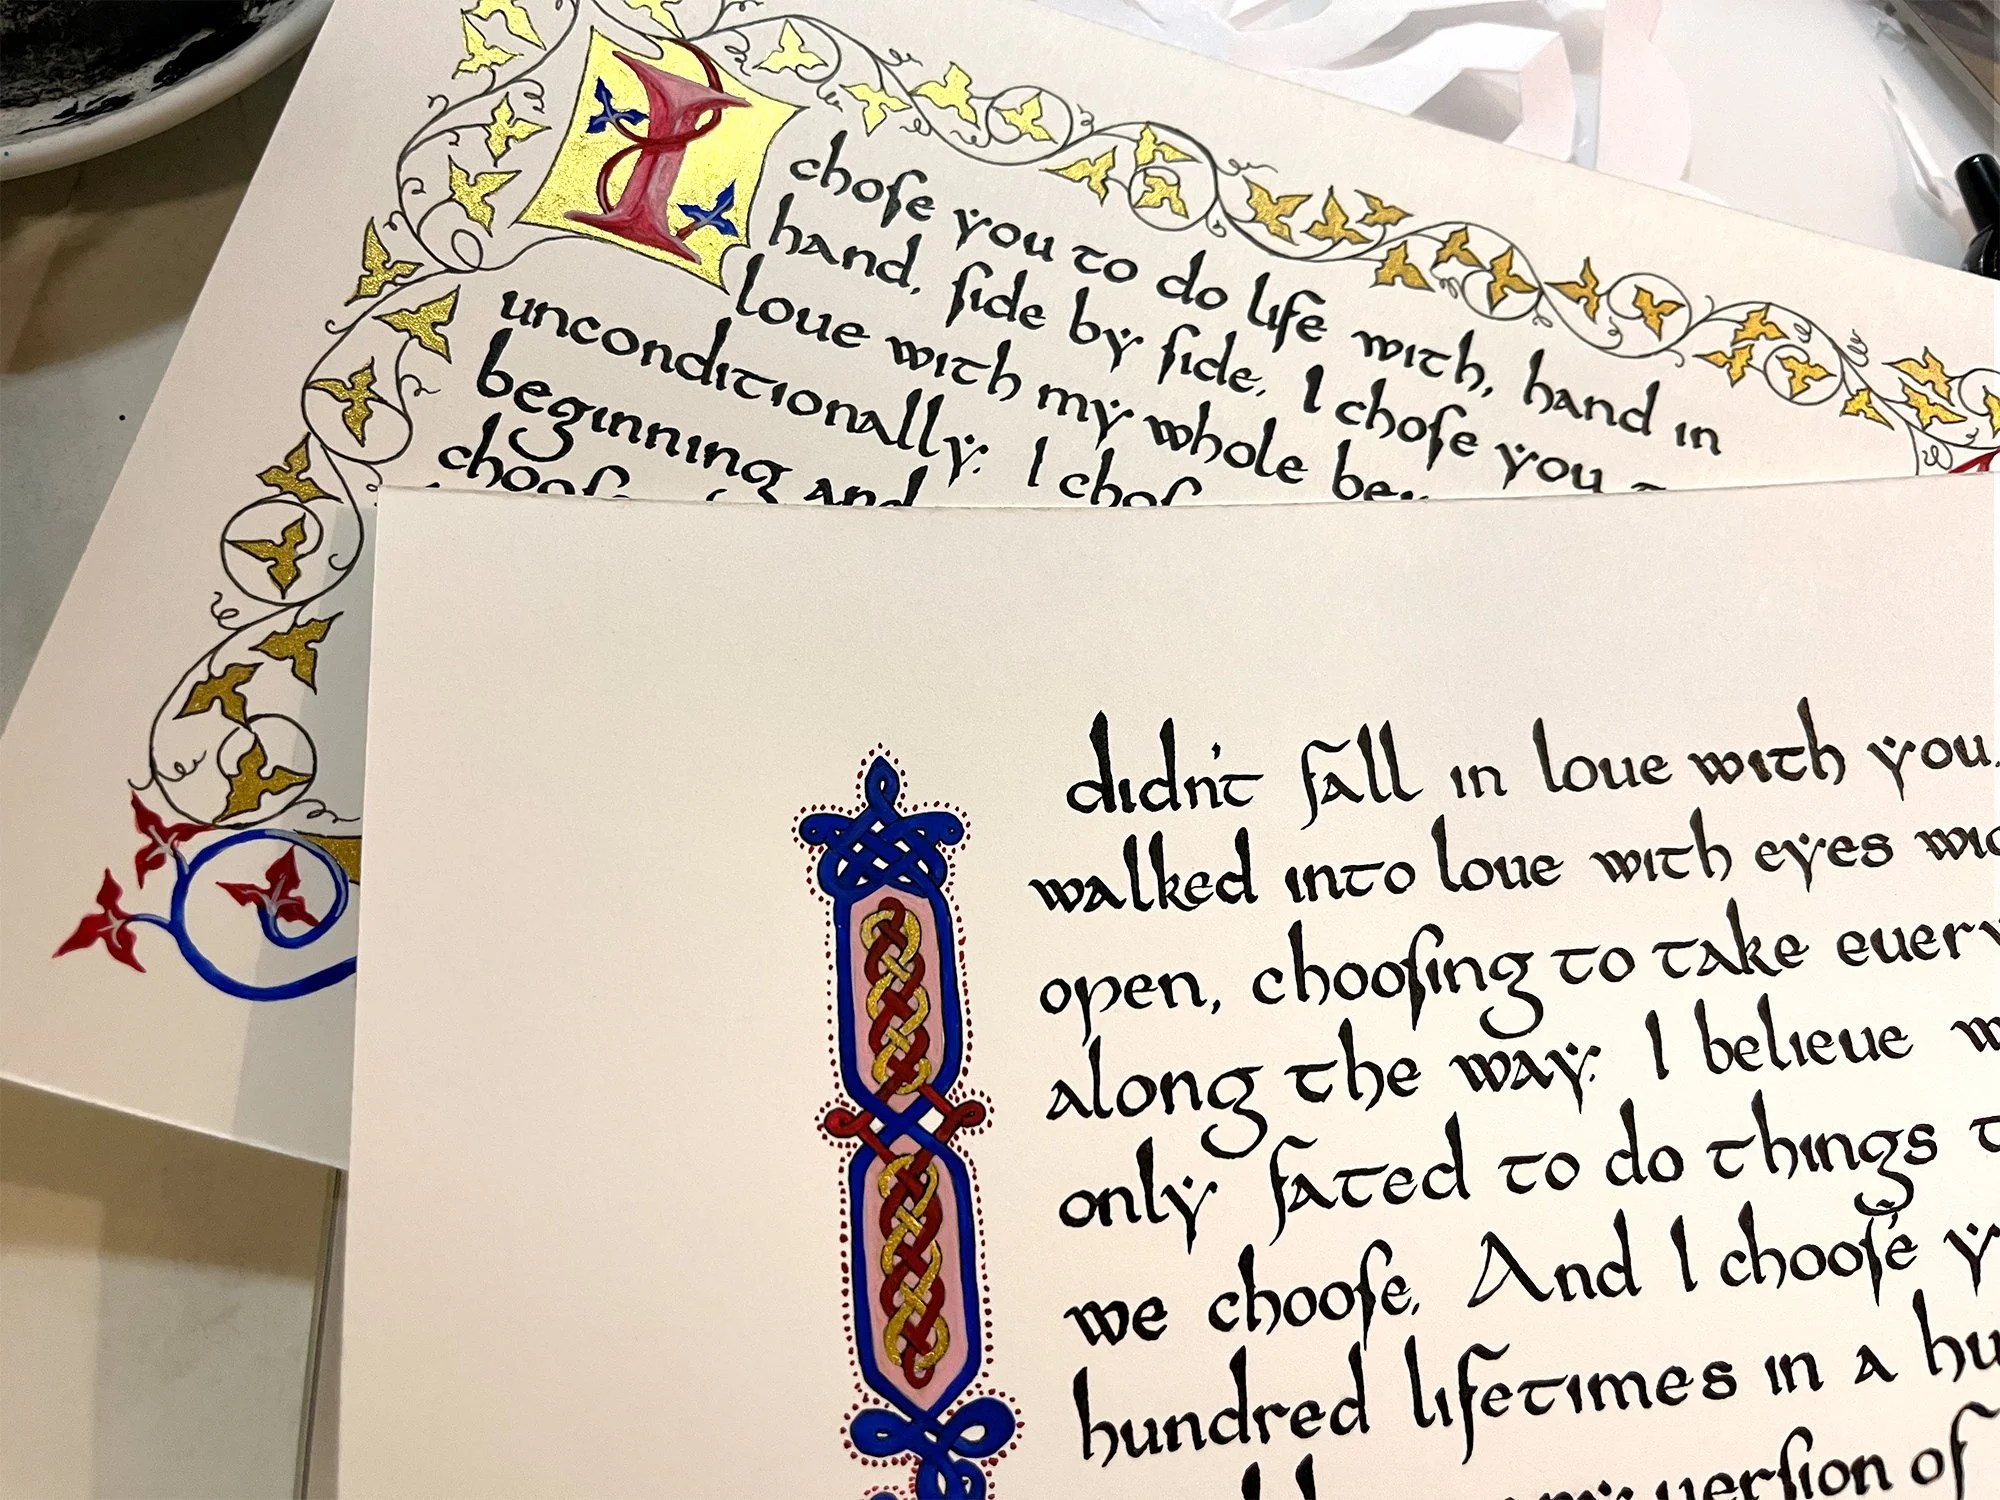 I choſe you to do life with, hand in
hand, ſide by ſide. I choſe you
loue with my whole
unconditionally. I choſe
beginning and
chooſe
I didn't fall in loue with you.
walked into loue with eyes
open, chooſing to take euery
along the way. I belieue
only fated to do things
we chooſe. And I chooſe
hundred lifetimes in a
uerſion of